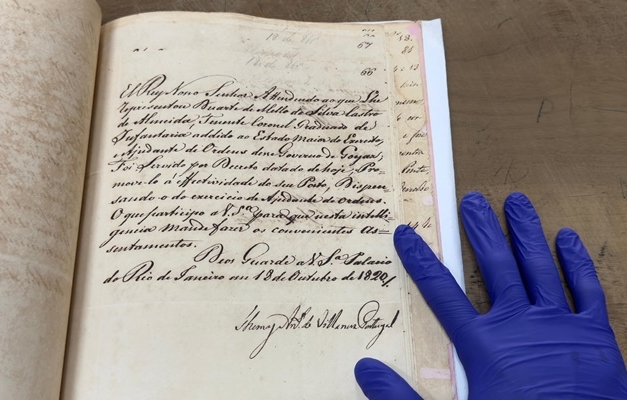 67
66
El Rey Nosso Senhor Attendendo ao que lhe
representou Duarte de Mello da Silva Castro
de Almeida, Tenente Coronel Graduado de
Infantaria addido ao Estado Maior do Exercito,
Ajudante de Ordens desse Governo de Goyaz,
Foi Servido por Decreto datado de hoje, Pro-
move-lo á effectividade do seu Posto, Dispen-
sando o do exercicio de Ajudante de Ordens.
O que participo a V. S.ª para que nesta intelli-
gencia mande fazer os convenientes As-
sentamentos.
Deos Guarde a V. S.ª Palacio
do Rio de Janeiro em 18 de Outubro de 1820/
Thomaz Ant.º de Villanova Portugal